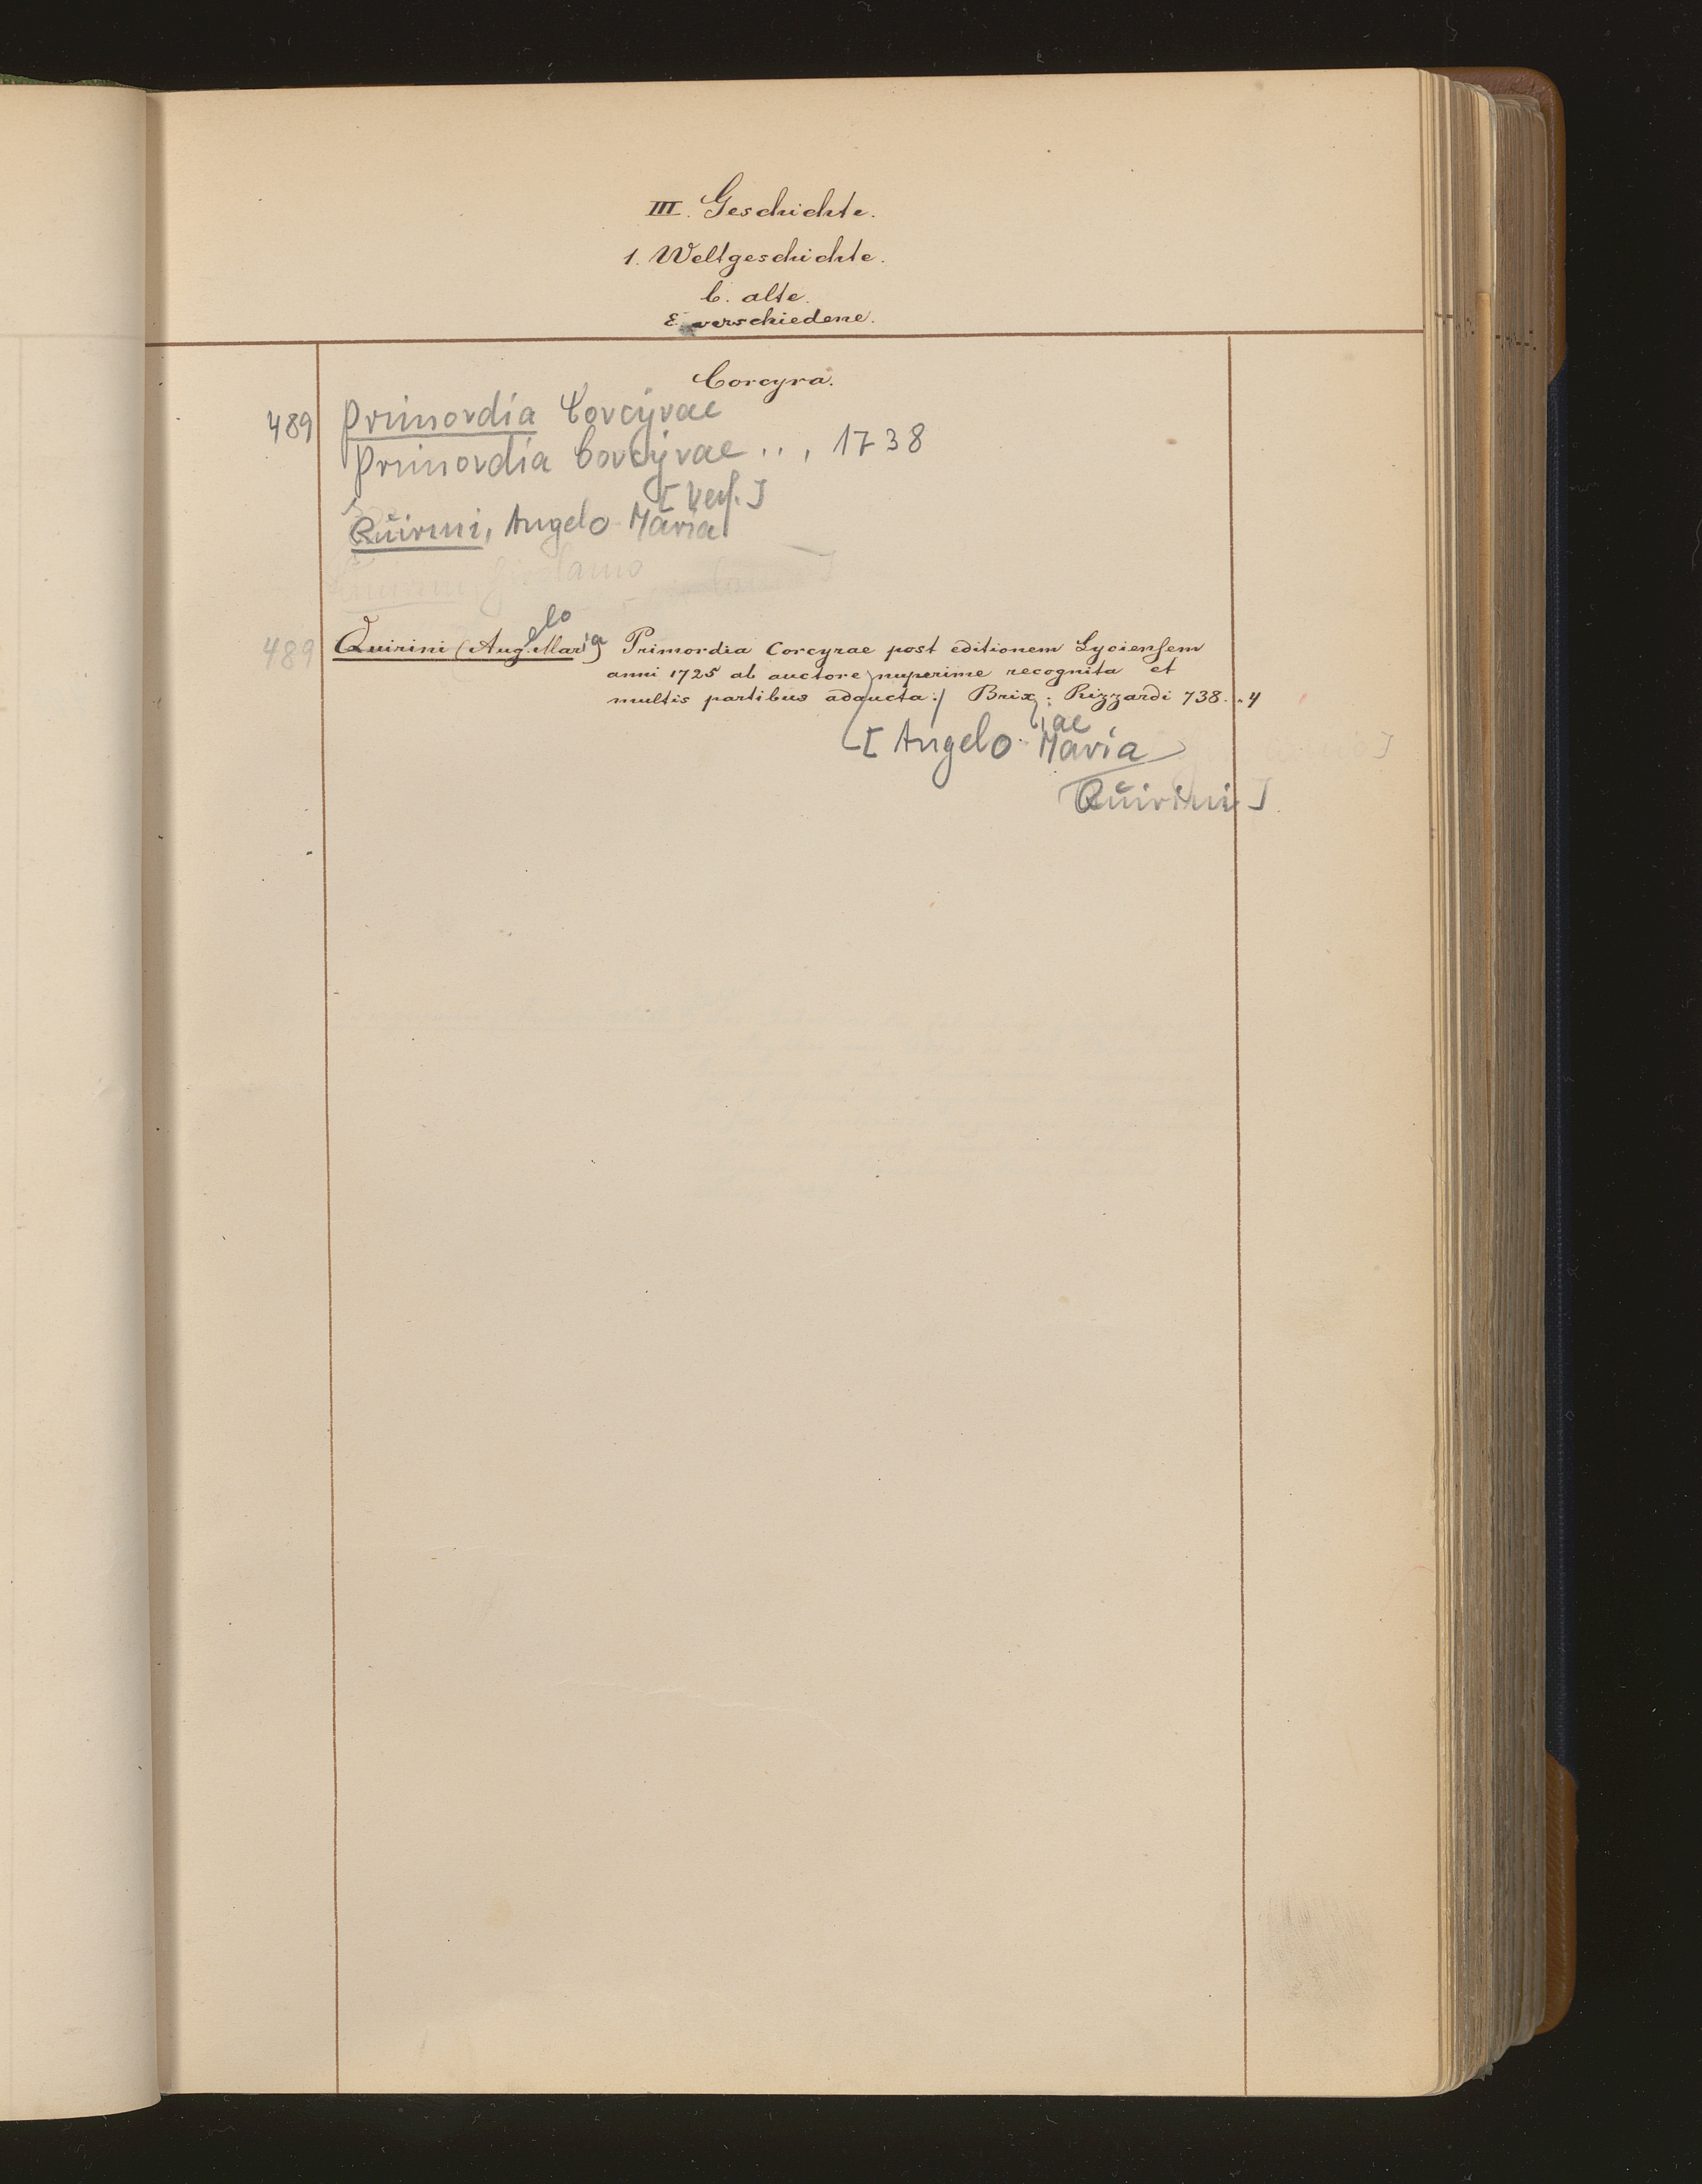 III. Geschichte.
1. Weltgeschichte.
b. alte.
ε verschiedene.
Corcyra.
489 Primordia Corcyrae
Primordia Corcyrae .., 1738
[Verf.]
Quirini, Angelo Maria
Girolamo
489 Quirini (Angelo Maria) Primordia Corcyrae post editionem Lyciensem
anni 1725 ab auctore nuperime recognita et
multis partibus adaucta:/ Brix: Rizzardi 738. . 4
iae
[Angelo Maria
Quirini]